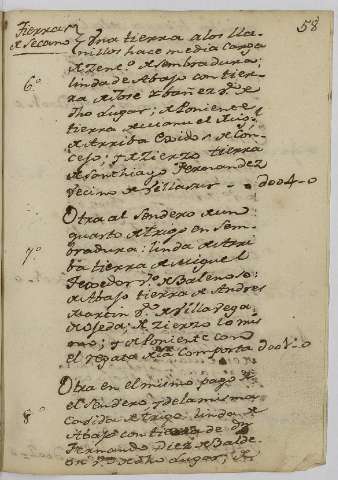 58
Tierras
de Secano
Una tierra a los lla-
nillos hace media Carga
de Zenteno de sembradura;
6.º
linda de Abajo con tier-
ra de Jose
dho Lugar; de Poniente
tierra de Manuel
de Arriba Exidos de Con-
cejo; y de Zierzo tierra
de Santhiago Fernandez
vecino de Villasur - - d004-0
Otra al Sendero de un
quarto de trigo en Sem-
7.º
bradura: linda de Arri
ba tierra de Miguel
v.º de Balenoso;
de Abajo tierra de Andres
Martin v.º de Villavega
de Ojeda; de Zierzo lo mis
mo; y de Poniente con
el regata de la Comporta d00V-0
Otra en el mismo pago de
el Sendero y de la misma
8.º
cavida de trigo: linda de
Abajo con tierra de dn
Fernando Diez de Balde
v.º de dho Lugar; de